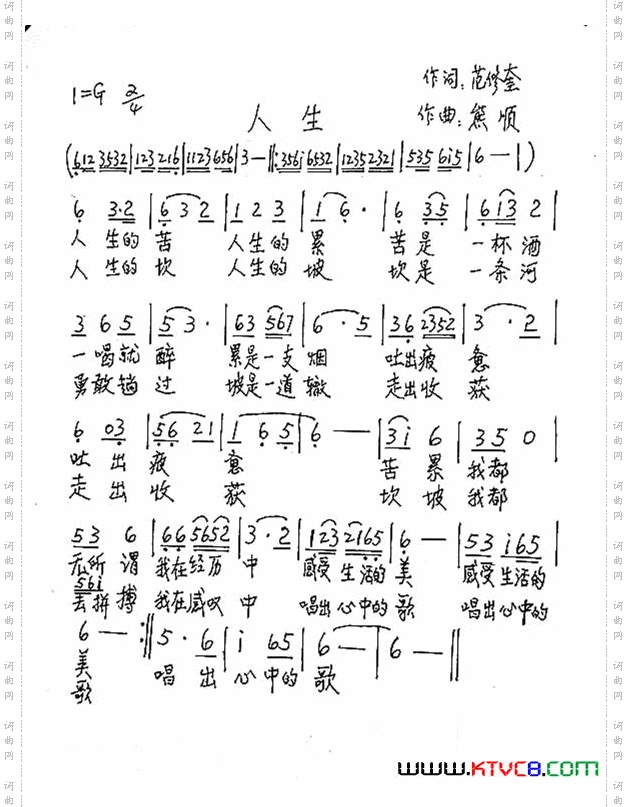 作词:范修奎
1=G 2/4
人生
作曲:熊顺
(612 3532|123 216|1123 656|3 —‖:356i 6532|1235 2321|535 6i5|6 —|)
6 3·2|6 3 2|1 2 3|1 6·|6 35|613 2|
人 生的 苦 人生的 累 苦 是 一杯 酒
人 生的 坎 人生的 坡 坎 是 一条 河
3 6 5|5 3·|63 567|6·5|36 2352|3·2|
一喝就 醉 累是一支 烟 吐出疲 惫
勇敢镐 过 坡是一道 辙 走出收 获
6 03|56 21|1 6 5|6 —|3i 6|35 0|
吐 出 疲 惫 苦 累 我都
走 出 收 获 坎 坡 我都
53 6|66 5652|3·2|123 2165|6 —|53 i65|
无所 谓 我在经历 中 感受 生活的 美 感受 生活的
56i
去拼 搏 我在感叹 中 唱出 心中的 歌 唱出 心中的
6 —:‖5·6|i 65|6 —|6 —‖
美 唱 出 心 中的 歌
歌
www.KTVC8.com
词曲网